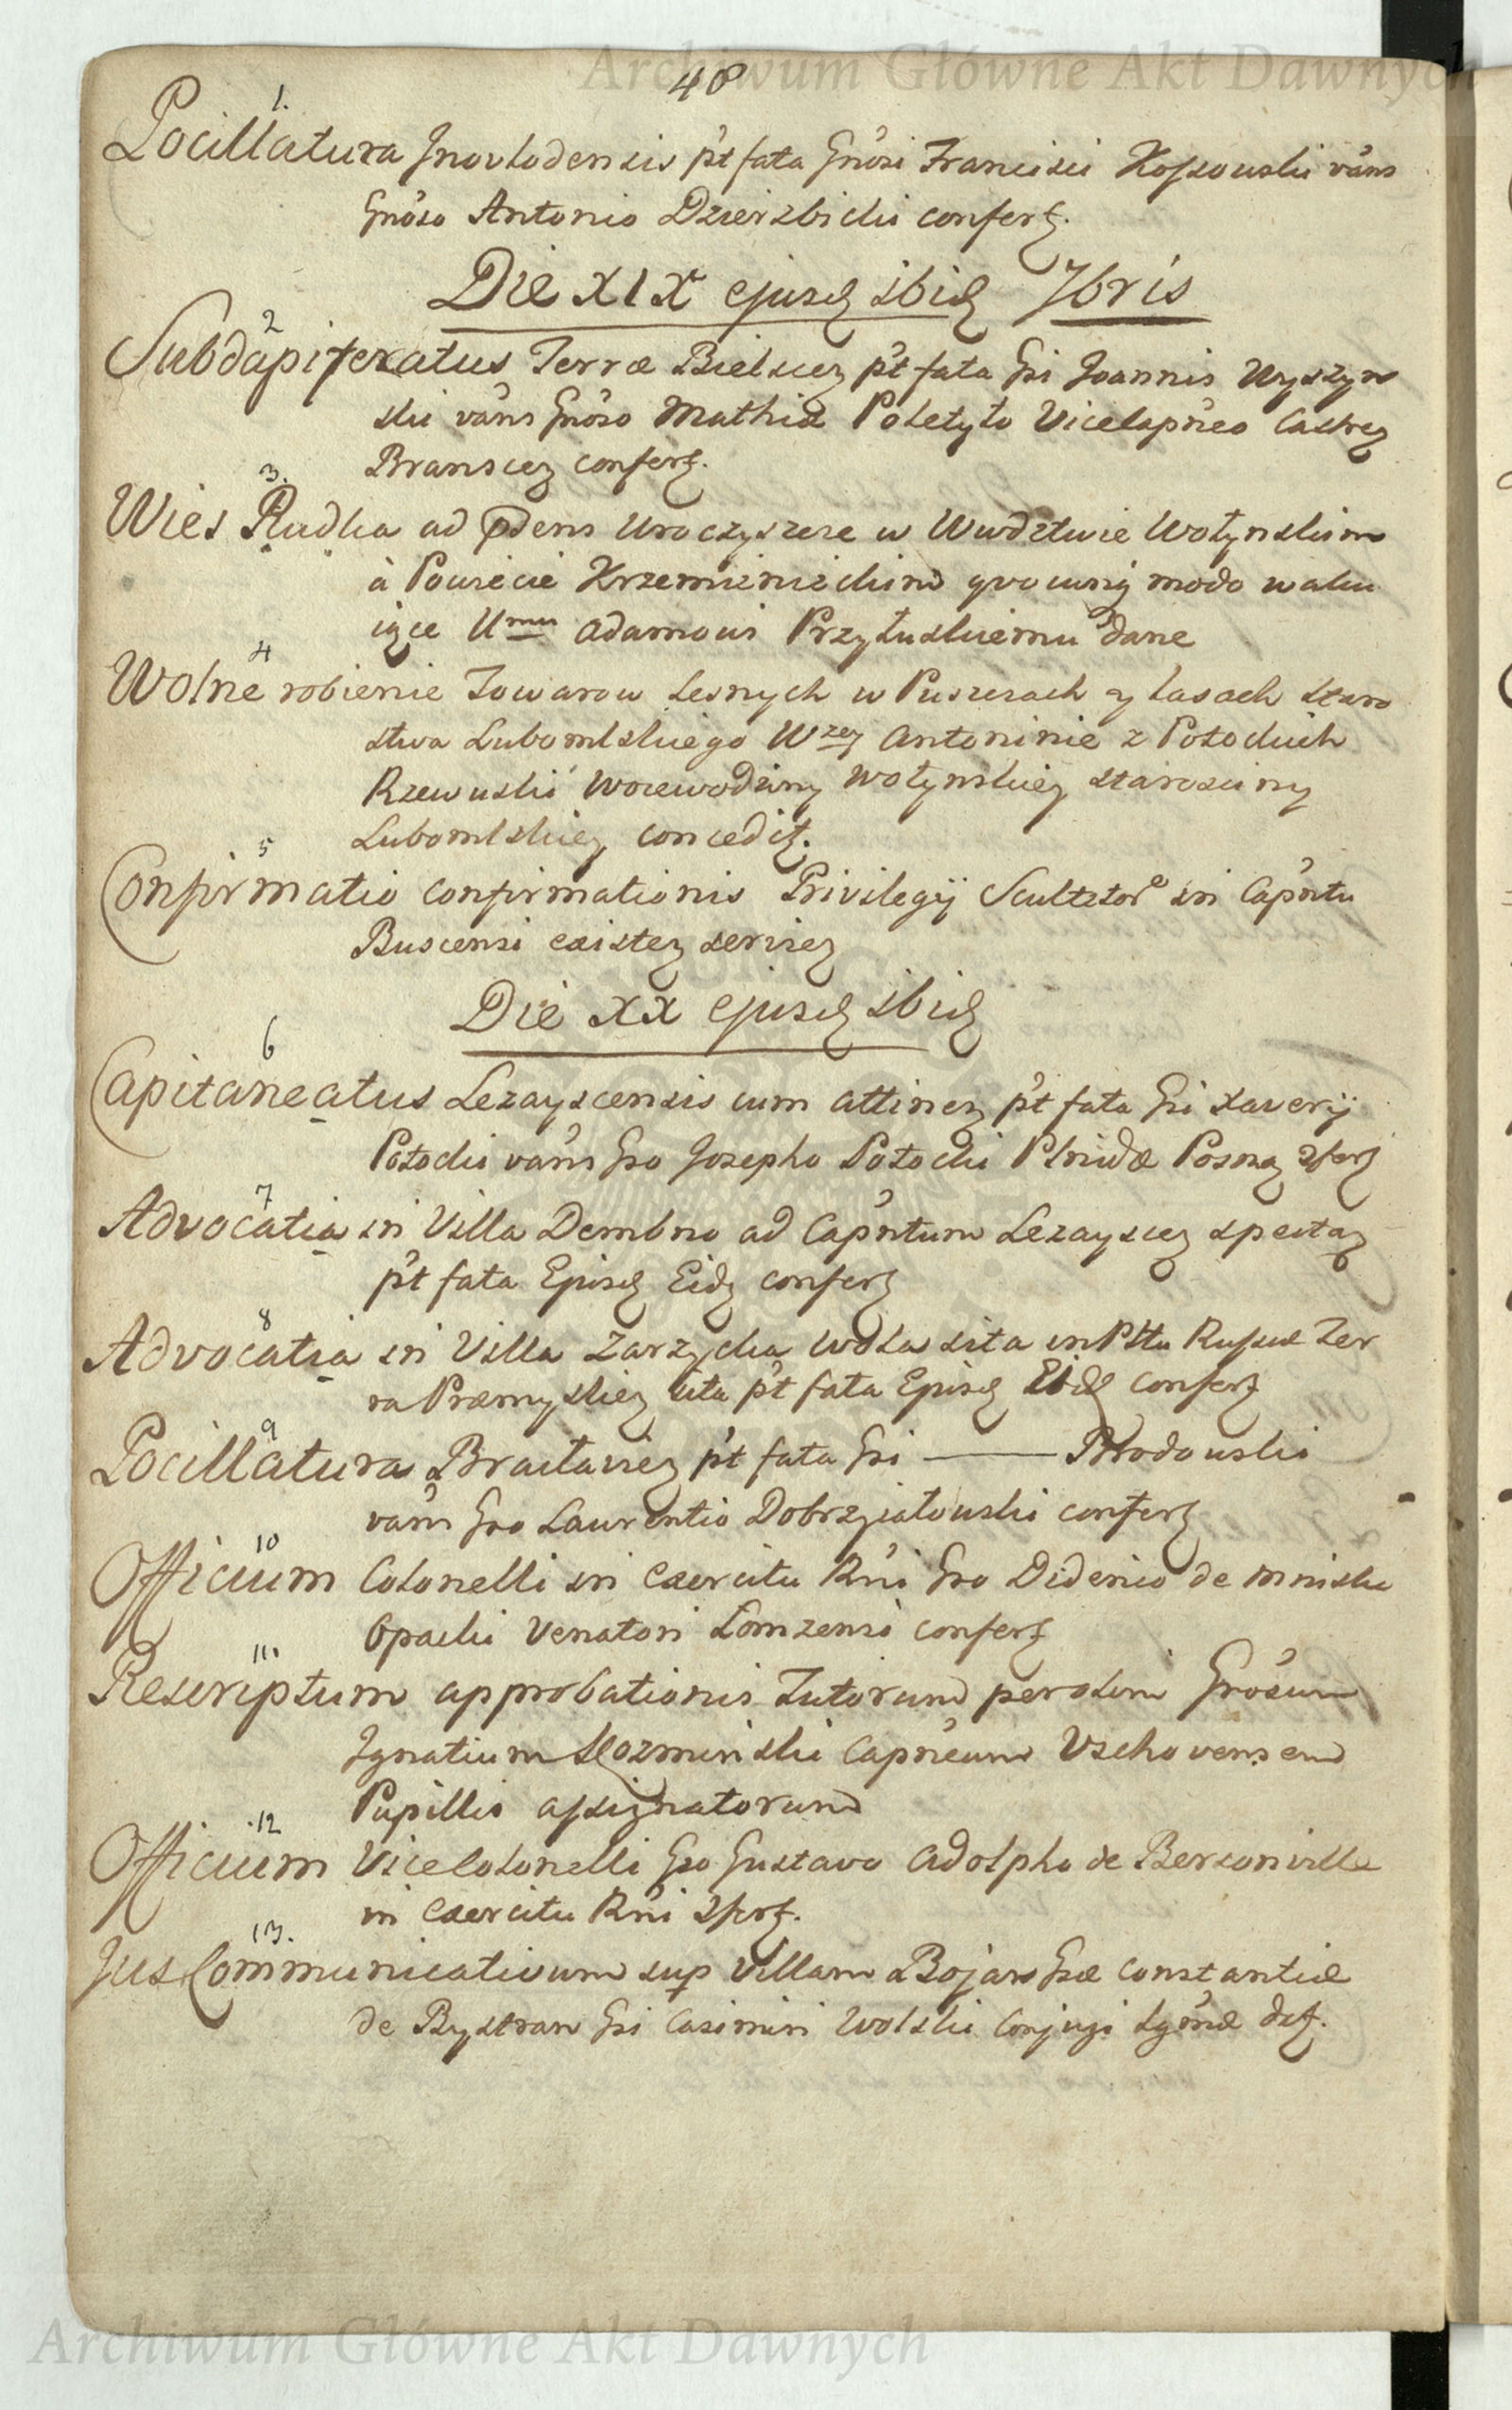 Archiwum Główne Akt Dawnych
48
1.
Pocillatura Jnovlodensis p't fata Gnosi Francisci Kossowski váns
Gnoso Antonio Dzierzbicki confert.
Die XIX ejusd ibid 7bris
2
Subdapiferatus Terræ Bielscen p't fata Gsi Joannis Wyszyn
ski váns Gnoso Mathiæ Poletyło Vicecapneo Castren
Branscen confert.
3.
Wies Rudka ad pdens Uroczyszcze w Wwdztwie Wołynskim
à Powiecie Krzemienieckim qvocunq modo waku
iące Umu Adamowi Przyłuskiemu dane
4
Wolne robienie Towarow Lesnych w Puszczach y Lasach Staro
stwa Lubomlskiego Wzey Antoninie z Potockich
Rzewuski Woiewodziny Wołynskiey Starosciny
Lubomlskiey concedit.
5
Confirmatio confirmationis Privilegij Scultetor in Cap'ntu
Buscensi existen servien
Die XX ejusd ibid
6
Capitaneatus Lezayscensis cum attinen p't fata Gsi Xaverij
Potocki váns Gso Josepho Potocki Pósnan confert
7
Advocatia in Villa Dembno ad Cap'ntum Lezayscen spectan
p't fata Ejusd Eid confert
8
Advocatia in Villa Zarzycka Wola sita in Pttu Russiæ Ter
ra Præmysliey sita p't fata Ejusd Eid confert
9
Pocillatura Braclavien p't fata Gsi ——— Brodowski
váns Gso Laurentio Dobrzialowski confert
10
Officium Colonelli in Exercitu Rni Gso Diderico de Mniszki
Opacki Venatori Lomzensi confert
11.
Rescriptum approbationis Tutorum per olim Gnosum
Ignatium Kozminski Capneum Vschovensem
Pupillis assignatorum
12
Officium Vicecolonelli Gso Gustavo Adolpho de Bersonville
in Exercitu Rni confert.
13.
Jus Communicativum sup Villam Bojary Gsæ Constantiæ
de Bystram Gsi Casimiri Wolski Conjugi Lgómæ dat.
Archiwum Główne Akt Dawnych